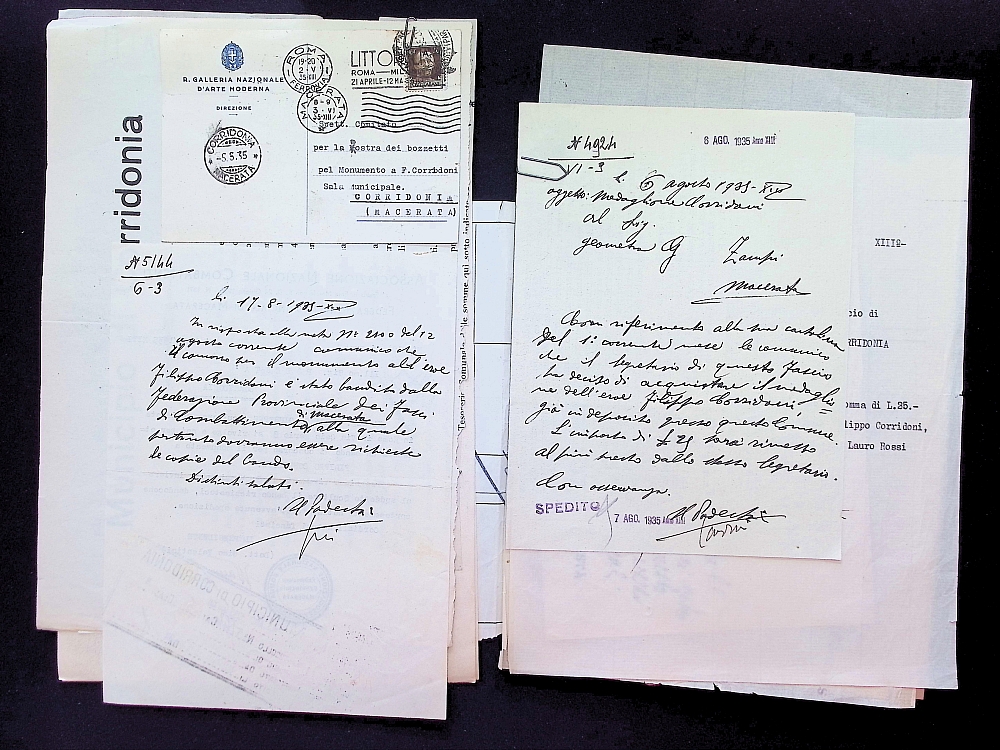 R. GALLERIA NAZIONALE
D'ARTE MODERNA
DIREZIONE
ROMA
FERROVIA
19-20
2 · V
35 · XIII
LITTO
ROMA — MIL
21 APRILE - 12 MA
MACERATA
8-9
3 · VI
35 · XIII
CORRIDONIA
-5.5.35
MACERATA
Spett. Comitato
per la Mostra dei bozzetti
pel Monumento a F.Corridoni
Sala Municipale.
CORRIDONIA
(MACERATA)
rridonia
N 5144
6-3
li 17-8-1935-XIII
In risposta alla nota N° 2100 del 12
agosto corrente comunico che
il concorso per il monumento all'eroe
Filippo Corridoni è stato bandito dalla
Federazione Provinciale dei Fasci
di Combattimento di Macerata, alla quale
pertanto dovranno essere richieste
le copie del bando.
Distinti saluti.
Il Podestà
N 4924
VI-3
6 AGO. 1935 Anno XIII
li 6 agosto 1935-XIII
oggetto: Medaglione Corridoni
al Sig.
geometra G Zampi
Macerata
Con riferimento alla sua cartolina
del 1° corrente mese le comunico
che il segretario di questo Fascio
ha deciso di acquistare il medaglio=
ne dell'eroe Filippo Corridoni,
già in deposito presso questo Comune.
L'importo di £ 25 sarà rimesso
al più presto dallo stesso Segretario.
Con osservanza.
Il Podestà
SPEDITO
7 AGO. 1935 Anno XIII
XIIIº-
cio di
RRIDONIA
omma di L.25.-
lippo Corridoni,
Lauro Rossi